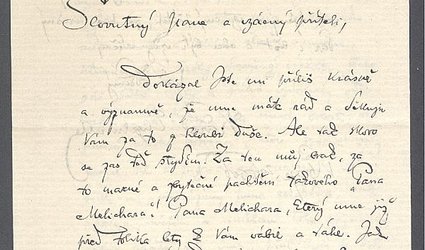 Slovutný Pane a vzácný příteli,
Dokázal jste mi příliš krásně
a významně, že mne máte rád a děkuju
Vám za to z hloubi duše. Ale však skoro
se zas teď stydím. Za ten můj vak, za
to marné a zbytečné pachtění takového "Pana
Melichara." Pana Melichara, který mne již
před lety k Vám vábil a táhl.